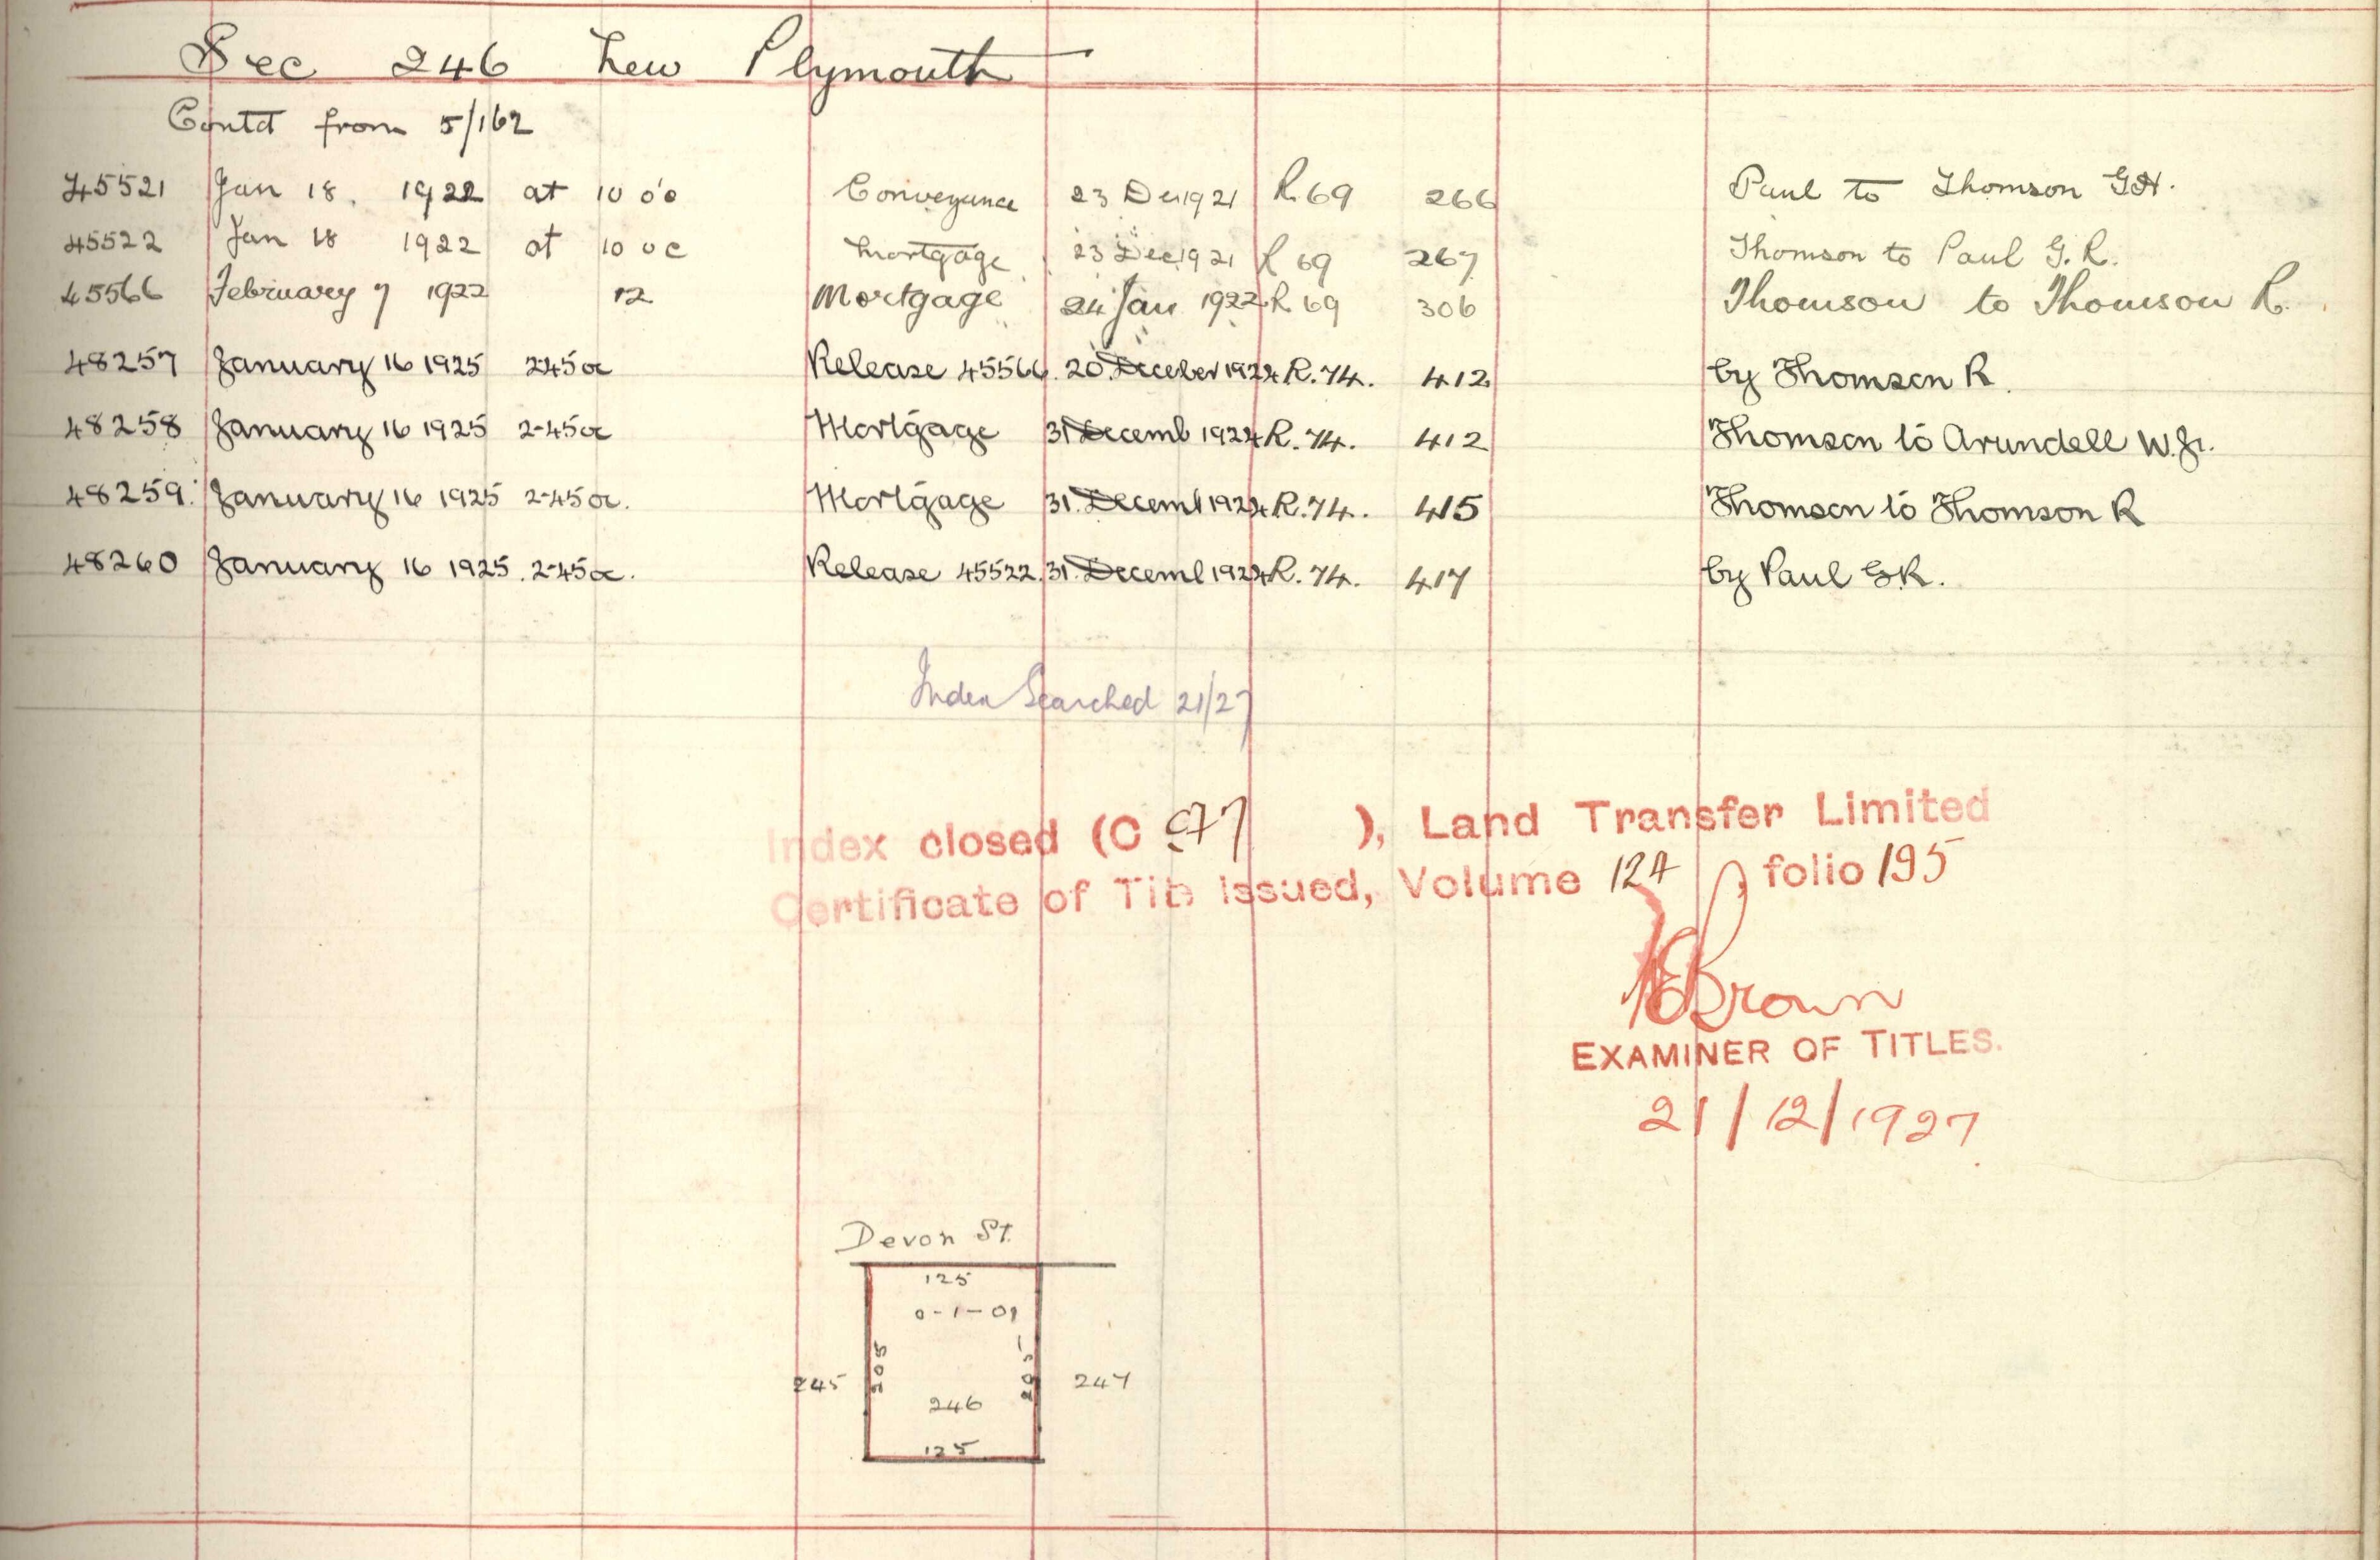 Sec 246 New Plymouth
Contd from 5/162
45521 Jan 18. 1922 at 10 oc Conveyance 23 Dec 1921 R 69 266 Paul to Thomson G.H.
45522 Jan 18 1922 at 10 oc Mortgage 23 Dec 1921 R 69 267 Thomson to Paul G. R.
45566 February 7 1922 12 Mortgage 24 Jan 1922 R 69 306 Thomson to Thomson R.
48257 January 16 1925 2-45 oc Release 45566. 20 December 1924 R. 74. 412 by Thomson R.
48258 January 16 1925 2-45 oc Mortgage 31 Decemb 1924 R. 74. 412 Thomson to Arundell W.
48259. January 16 1925 2-45 oc. Mortgage 31. Decemb 1924 R. 74. 415 Thomson to Thomson R
48260 January 16 1925. 2-45 oc. Release 45522. 31. Decemb 1924 R. 74. 417 by Paul G R.
Index Searched 21/27
Index closed (C 977 ), Land Transfer Limited
Certificate of Title issued, Volume 124, folio 195
Brown
EXAMINER OF TITLES.
21/12/1927
Devon St.
125
0-1-01
205
205
245
247
246
125